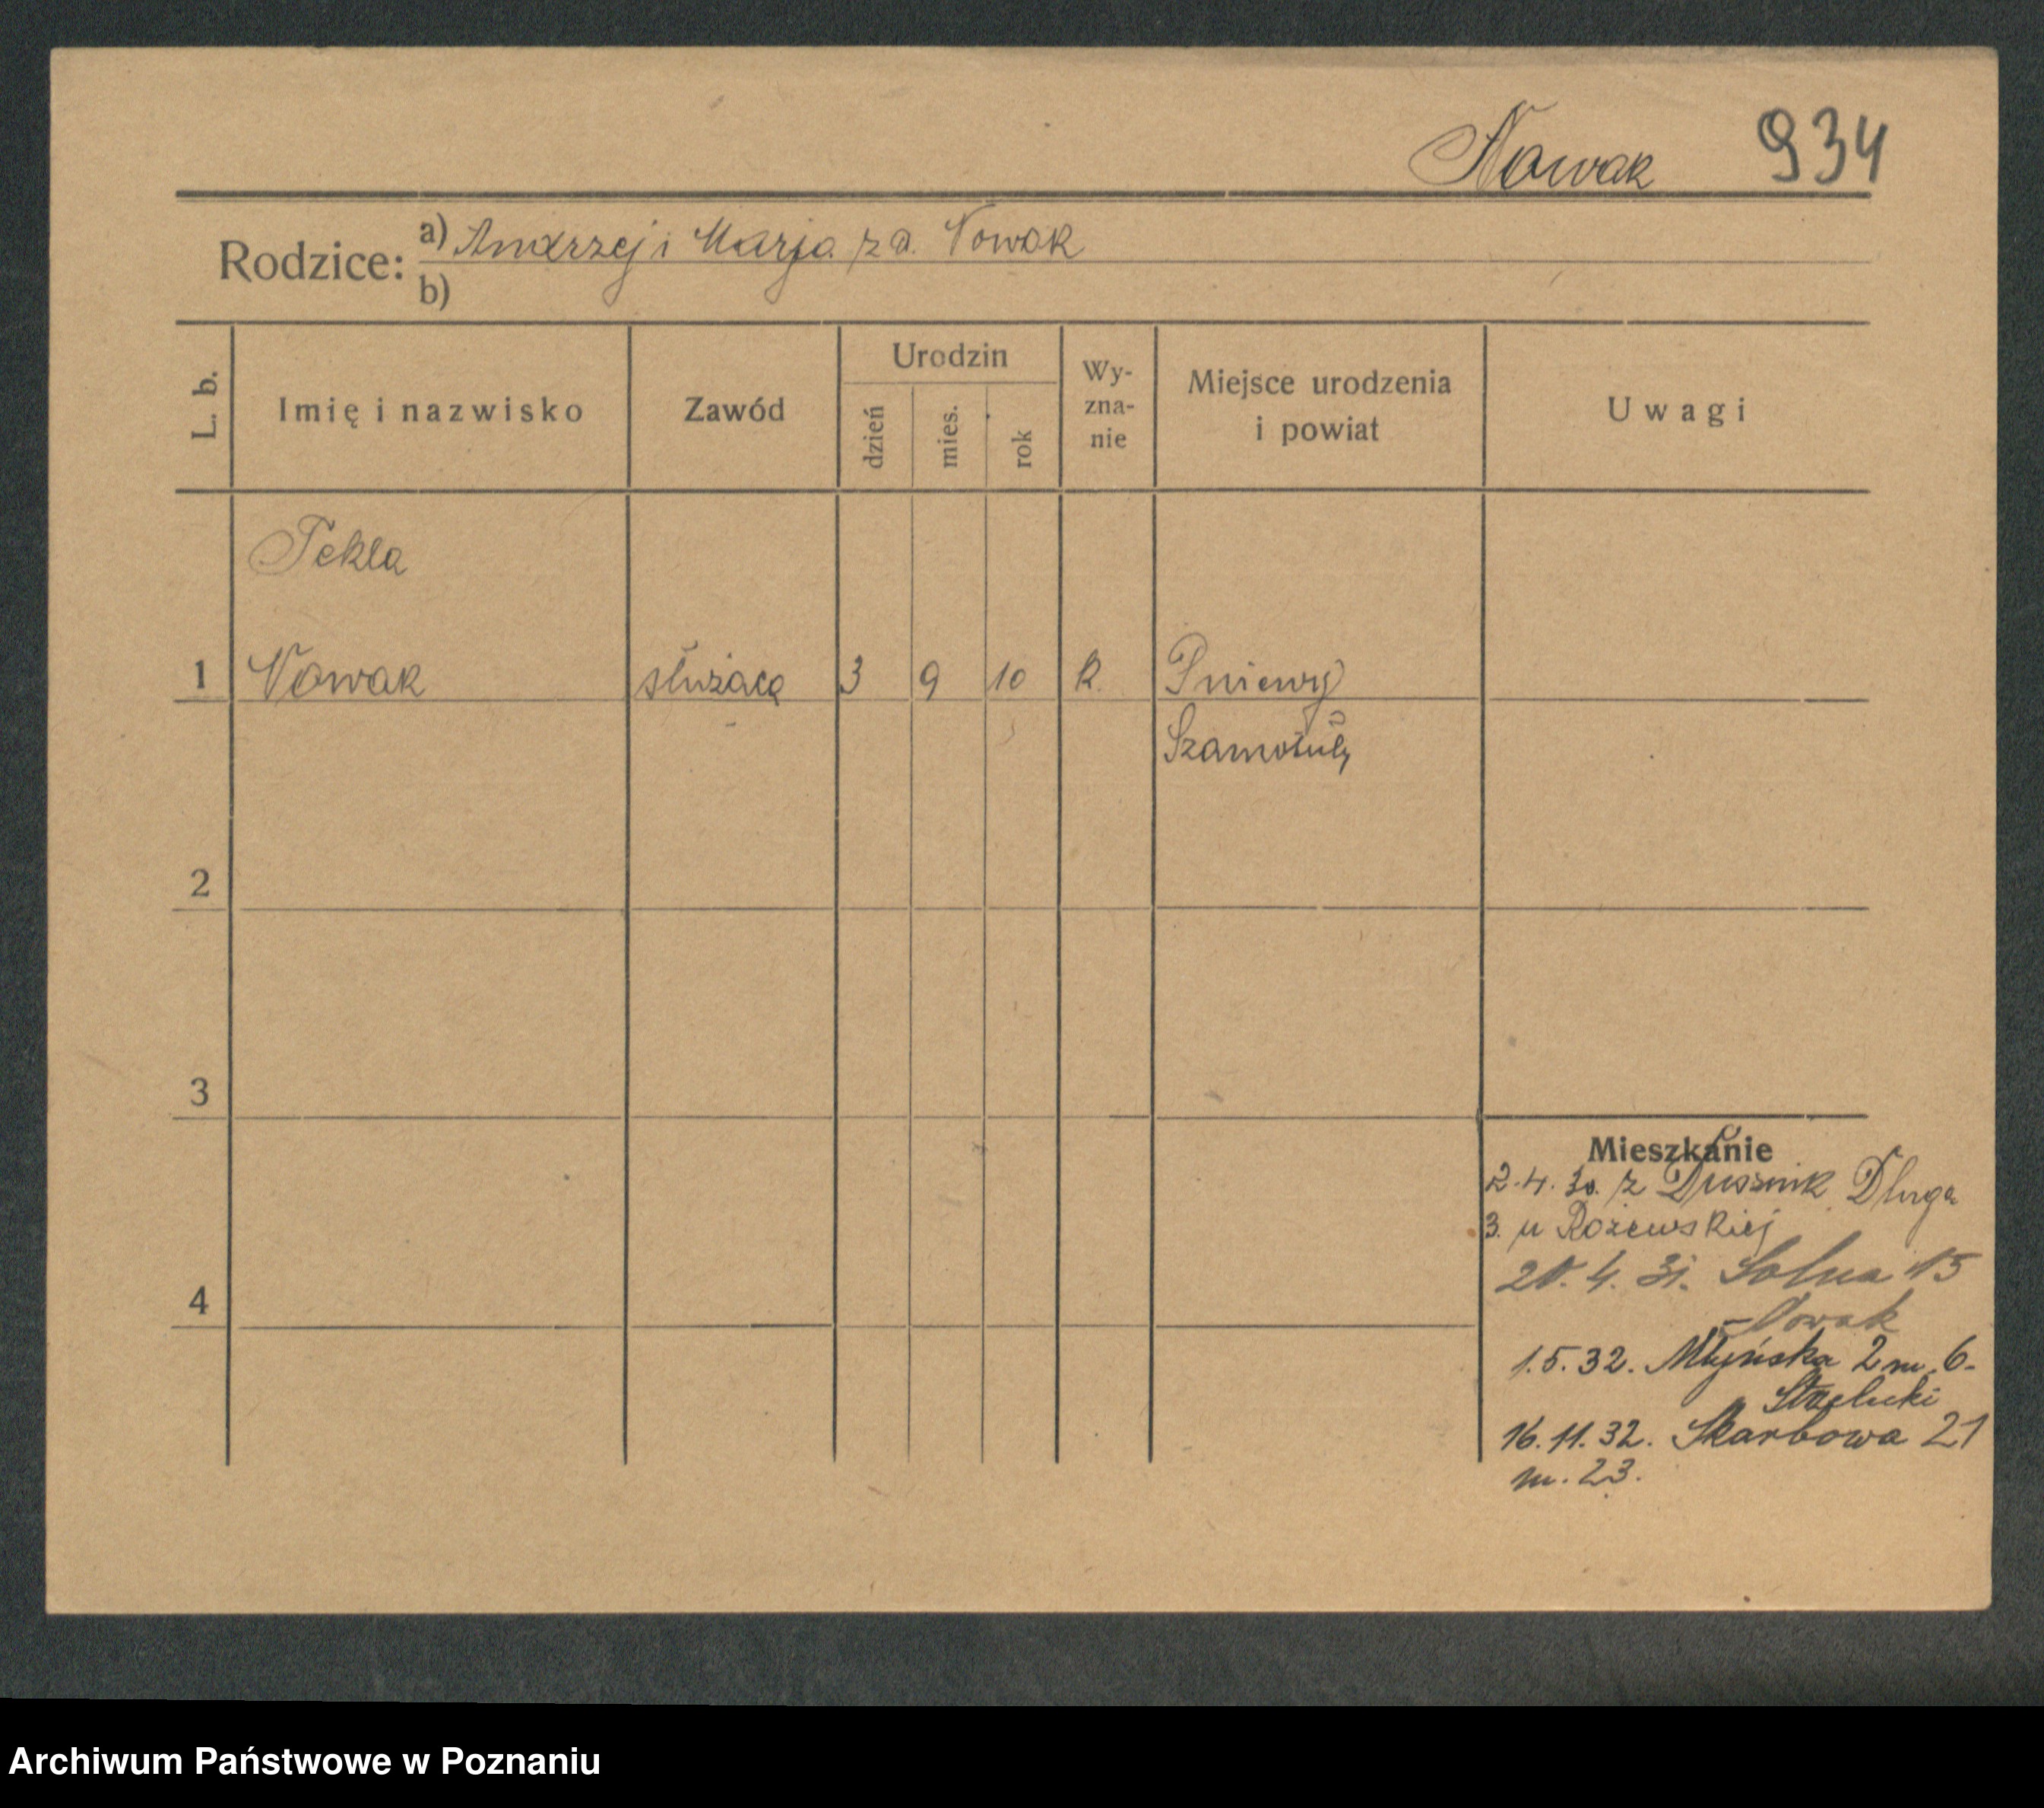 Nowak 934
Rodzice: a) Andrzej i Marja z d. Nowak
b)
L. b. Imię i nazwisko Zawód Urodzin dzień mies. rok Wy-zna-nie Miejsce urodzenia i powiat Uwagi
Tekla
1 Nowak służąca 3 9 10 k. Pniewy
Szamotuły
2
3
Mieszkanie
2.4.30. z Dusznik Długa
3. u Rożewskiej
4
20.4.31. Solna 15
Nowak
1.5.32. Młyńska 2 m. 6.
Strzelecki
16.11.32. Skarbowa 21
m. 23.
Archiwum Państwowe w Poznaniu